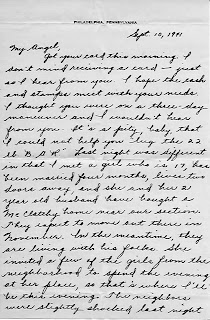 PHILADELPHIA, PENNSYLVANIA
Sept. 10, 1941
My Angel,
Got your card this morning. I
don't mind receiving a card – just
so I hear from you. I hope the cash
and stamps meet with your needs.
I thought you were on a three-day
maneuver and I wouldn't hear
from you. It's a pity, baby, that
I could not help you "lug the 22
lb B.A.R." Last night was different
in that I met a girl who is 19, has
been married four months, lives two
doors away, and she and her 21
year old husband have bought a
McClatchy home near our section.
They expect to move out there in
November. In the meantime, they
are living with his folks. She
invited a few of the girls from the
neighborhood to spend the evening
at her place, so that is where I'll
be this evening. The neighbors
were slightly shocked last night